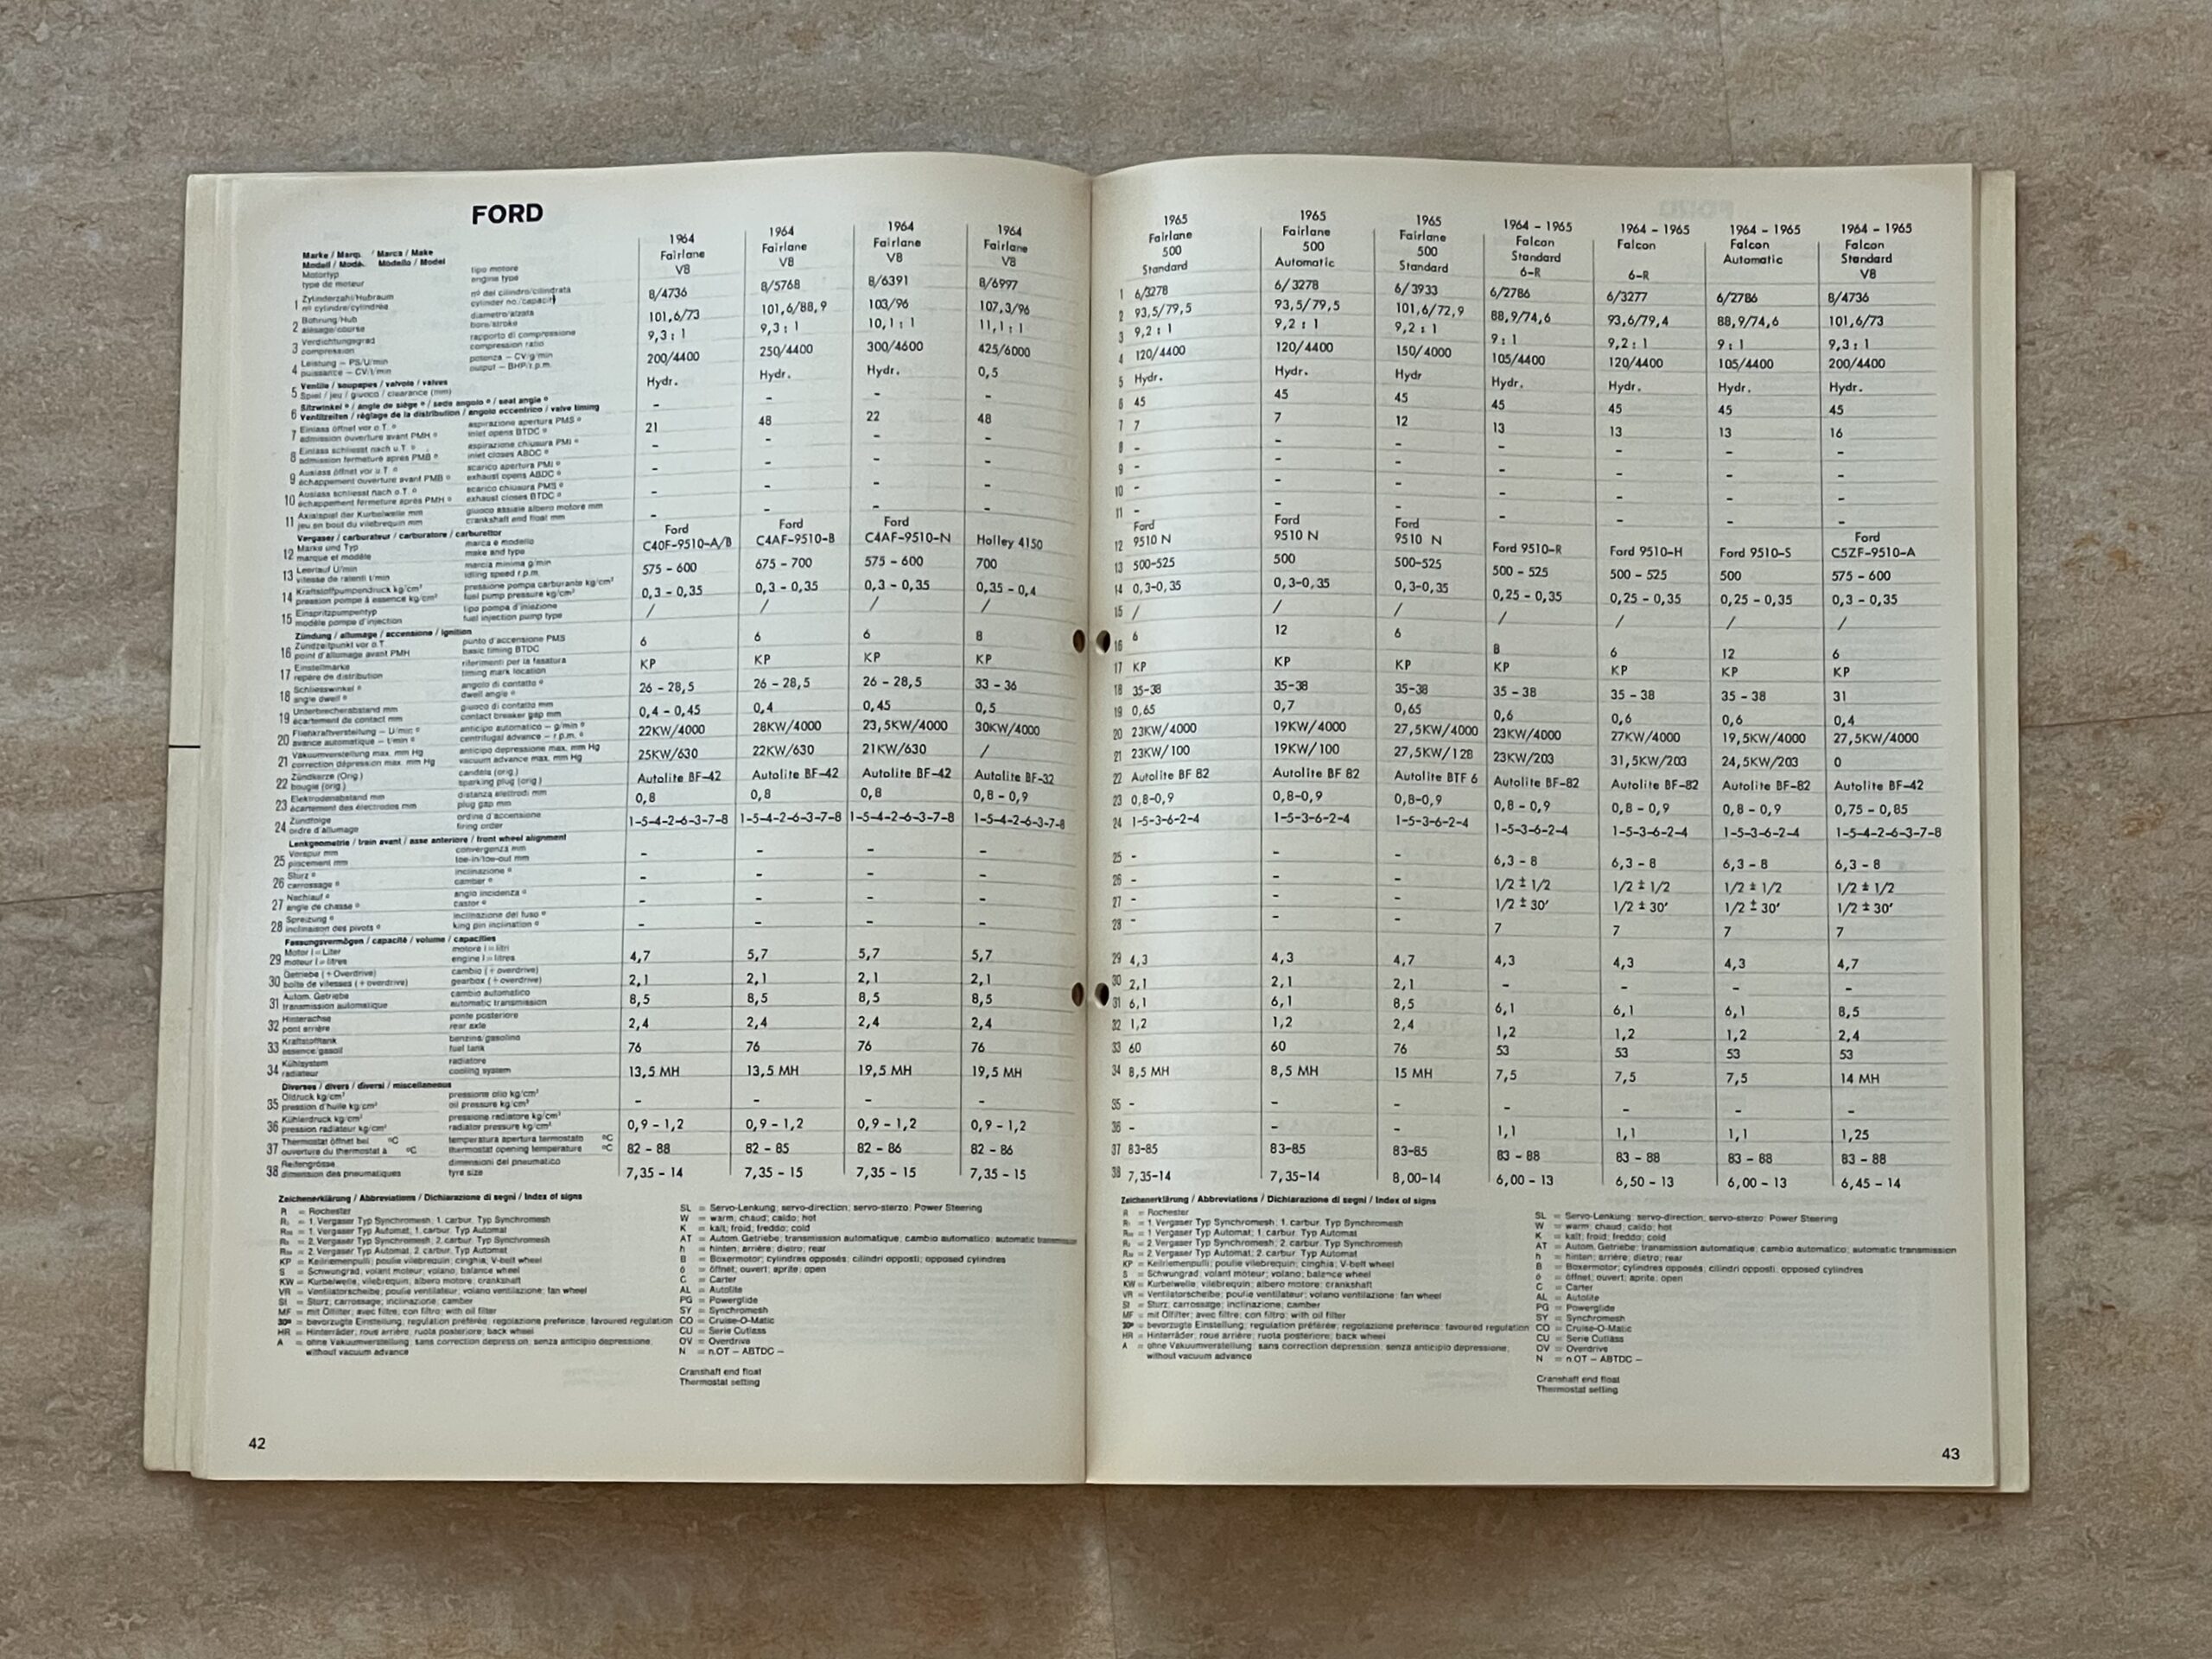 FORD
1964 1964 1964 1964
Fairlane Fairlane Fairlane Fairlane
V8 V8 V8 V8
Marke / Marq. / Marca / Make
Modell / Modè. Modello / Model
Motortyp tipo motore
type de moteur engine type
1 Zylinderzahl/Hubraum nº del cilindro/cilindrata 8/4736 8/5768 8/6391 8/6997
nº cylindre/cylindrée cylinder no./capacity
2 Bohrung/Hub diametro/alzata 101,6/73 101,6/88,9 103/96 107,3/96
alésage/course bore/stroke
3 Verdichtungsgrad rapporto di compressione 9,3 : 1 9,3 : 1 10,1 : 1 11,1 : 1
compression compression ratio
4 Leistung – PS/U/min potenza – CV/g/min 200/4400 250/4400 300/4600 425/6000
puissance – CV/t/min output – BHP/r.p.m.
Ventile / soupapes / valvole / valves
5 Spiel / jeu / giuoco / clearance (mm) Hydr. Hydr. Hydr. 0,5
6 Sitzwinkel º / angle de siège º / sede angolo º / seat angle º – – – –
Ventilzeiten / réglage de la distribution / angolo eccentrico / valve timing
7 Einlass öffnet vor o.T. º aspirazione apertura PMS º 21 48 22 48
admission ouverture avant PMH º inlet opens BTDC º
8 Einlass schliesst nach u.T. º aspirazione chiusura PMI º – – – –
admission fermeture après PMB º inlet closes ABDC º
9 Auslass öffnet vor u.T º scarico apertura PMI º – – – –
échappement ouverture avant PMB º exhaust opens ABDC º
10 Auslass schliesst nach o.T. º scarico chiusura PMS º – – – –
échappement fermeture après PMH º exhaust closes BTDC º
11 Axialspiel der Kurbelwelle mm giuoco assiale albero motore mm – – – –
jeu en bout du vilebrequin mm crankshaft end float mm
Vergaser / carburateur / carburatore / carburettor
12 Marke und Typ marca e modello Ford C40F-9510-A/B Ford C4AF-9510-B Ford C4AF-9510-N Holley 4150
marque et modèle make and type
13 Leerlauf U/min marcia minima g/min 575 – 600 675 – 700 575 – 600 700
vitesse de ralenti t/min idling speed r.p.m.
14 Kraftstoffpumpendruck kg/cm² pressione pompa carburante kg/cm² 0,3 – 0,35 0,3 – 0,35 0,3 – 0,35 0,35 – 0,4
pression pompe à essence kg/cm² fuel pump pressure kg/cm²
15 Einspritzpumpentyp tipo pompa d'iniezione / / / /
modèle pompe d'injection fuel injection pump type
Zündung / allumage / accensione / ignition
16 Zündzeitpunkt vor o.T punto d'accensione PMS 6 6 6 8
point d'allumage avant PMH basic timing BTDC
17 Einstellmarke riferimenti per la fasatura KP KP KP KP
repère de distribution timing mark location
18 Schliesswinkel º angolo di contatto º 26 – 28,5 26 – 28,5 26 – 28,5 33 – 36
angle dwell º dwell angle º
19 Unterbrecherabstand mm giuoco di contatto mm 0,4 – 0,45 0,4 0,45 0,5
écartement de contact mm contact breaker gap mm
20 Fliehkraftverstellung – U/min º anticipo automatico – g/min º 22KW/4000 28KW/4000 23,5KW/4000 30KW/4000
avance automatique – t/min º centrifugal advance – r.p.m. º
21 Vakuumverstellung max. mm Hg anticipo depressione max. mm Hg 25KW/630 22KW/630 21KW/630 /
correction dépression max. mm Hg vacuum advance max. mm Hg
22 Zündkerze (Orig.) candela (orig.) Autolite BF-42 Autolite BF-42 Autolite BF-42 Autolite BF-32
bougie (orig.) sparking plug (orig.)
23 Elektrodenabstand mm distanza elettrodi mm 0,8 0,8 0,8 0,8 – 0,9
écartement des électrodes mm plug gap mm
24 Zündfolge ordine d'accensione 1-5-4-2-6-3-7-8 1-5-4-2-6-3-7-8 1-5-4-2-6-3-7-8 1-5-4-2-6-3-7-8
ordre d'allumage firing order
Lenkgeometrie / train avant / asse anteriore / front wheel alignment
25 Vorspur mm convergenza mm – – – –
pincement mm toe-in/toe-out mm
26 Sturz º inclinazione º – – – –
carrossage º camber º
27 Nachlauf º anglo incidenza º – – – –
angle de chasse º castor º
28 Spreizung º inclinazione del fuso º – – – –
inclinaison des pivots º king pin inclination º
Fassungsvermögen / capacité / volume / capacities
29 Motor l = Liter motore l = litri 4,7 5,7 5,7 5,7
moteur l = litres engine l = litres
30 Getriebe (+ Overdrive) cambio (+ overdrive) 2,1 2,1 2,1 2,1
boîte de vitesses (+ overdrive) gearbox (+ overdrive)
31 Autom. Getriebe cambio automatico 8,5 8,5 8,5 8,5
transmission automatique automatic transmission
32 Hinterachse ponte posteriore 2,4 2,4 2,4 2,4
pont arrière rear axle
33 Kraftstofftank benzina/gasolino 76 76 76 76
essence/gasoil fuel tank
34 Kühlsystem radiatore 13,5 MH 13,5 MH 19,5 MH 19,5 MH
radiateur cooling system
Diverses / divers / diversi / miscellaneous
35 Öldruck kg/cm² pressione olio kg/cm² – – – –
pression d'huile kg/cm² oil pressure kg/cm²
36 Kühlerdruck kg/cm² pressione radiatore kg/cm² 0,9 – 1,2 0,9 – 1,2 0,9 – 1,2 0,9 – 1,2
pression radiateur kg/cm² radiator pressure kg/cm²
37 Thermostat öffnet bei ºC temperatura apertura termostato ºC 82 – 88 82 – 85 82 – 86 82 – 86
ouverture du thermostat à ºC thermostat opening temperature ºC
38 Reifengrösse dimensioni del pneumatico 7,35 – 14 7,35 – 15 7,35 – 15 7,35 – 15
dimension des pneumatiques tyre size
Zeichenerklärung / Abbreviations / Dichiarazione di segni / Index of signs
R = Rochester
R₁ = 1. Vergaser Typ Synchromesh; 1. carbur. Typ Synchromesh
= 1. Vergaser Typ Automat; 1. carbur. Typ Automat
= 2. Vergaser Typ Synchromesh; 2. carbur. Typ Synchromesh
= 2. Vergaser Typ Automat; 2. carbur. Typ Automat
KP = Keilriemenpulli; poulie vilebrequin; cinghia; V-belt wheel
S = Schwungrad; volant moteur; volano; balance wheel
KW = Kurbelwelle; vilebrequin; albero motore; crankshaft
VR = Ventilatorscheibe; poulie ventilateur; volano ventilazione; fan wheel
St = Sturz; carrossage; inclinazione; camber
MF = mit Ölfilter; avec filtre; con filtro; with oil filter
30º = bevorzugte Einstellung; regulation préférée; regolazione preferisce; favoured regulation
HR = Hinterräder; roue arrière; ruota posteriore; back wheel
A = ohne Vakuumverstellung; sans correction depression; senza anticipio depressione;
without vacuum advance
SL = Servo-Lenkung; servo-direction; servo-sterzo; Power Steering
W = warm; chaud; caldo; hot
K = kalt; froid; freddo; cold
AT = Autom. Getriebe; transmission automatique; cambio automatico; automatic transmission
h = hinten; arrière; dietro; rear
B = Boxermotor; cylindres opposés; cilindri opposti; opposed cylindres
ö = öffnet; ouvert; aprite; open
C = Carter
AL = Autolite
PG = Powerglide
SY = Synchromesh
CO = Cruise-O-Matic
CU = Serie Cutlass
OV = Overdrive
N = n.OT – ABTDC –
Cranshaft end float
Thermostat setting
42
1965 1965 1965 1964 – 1965 1964 – 1965 1964 – 1965 1964 – 1965
Fairlane Fairlane Fairlane Falcon Falcon Falcon Falcon
500 500 500 Standard Automatic Standard
Standard Automatic Standard 6-R 6-R V8
1 6/3278 6/3278 6/3933 6/2786 6/3277 6/2786 8/4736
2 93,5/79,5 93,5/79,5 101,6/72,9 88,9/74,6 93,6/79,4 88,9/74,6 101,6/73
3 9,2 : 1 9,2 : 1 9,2 : 1 9 : 1 9,2 : 1 9 : 1 9,3 : 1
4 120/4400 120/4400 150/4000 105/4400 120/4400 105/4400 200/4400
5 Hydr. Hydr. Hydr Hydr. Hydr. Hydr. Hydr.
6 45 45 45 45 45 45 45
7 7 7 12 13 13 13 16
8 – – – – – – –
9 – – – – – – –
10 – – – – – – –
11 – – – – – – –
12 Ford 9510 N Ford 9510 N Ford 9510 N Ford 9510-R Ford 9510-H Ford 9510-S Ford C5ZF-9510-A
13 500-525 500 500-525 500 – 525 500 – 525 500 575 – 600
14 0,3-0,35 0,3-0,35 0,3-0,35 0,25 – 0,35 0,25 – 0,35 0,25 – 0,35 0,3 – 0,35
15 / / / / / / /
16 6 12 6 8 6 12 6
17 KP KP KP KP KP KP KP
18 35-38 35-38 35-38 35 – 38 35 – 38 35 – 38 31
19 0,65 0,7 0,65 0,6 0,6 0,6 0,4
20 23KW/4000 19KW/4000 27,5KW/4000 23KW/4000 27KW/4000 19,5KW/4000 27,5KW/4000
21 23KW/100 19KW/100 27,5KW/128 23KW/203 31,5KW/203 24,5KW/203 0
22 Autolite BF 82 Autolite BF 82 Autolite BTF 6 Autolite BF-82 Autolite BF-82 Autolite BF-82 Autolite BF-42
23 0,8-0,9 0,8-0,9 0,8-0,9 0,8 – 0,9 0,8 – 0,9 0,8 – 0,9 0,75 – 0,85
24 1-5-3-6-2-4 1-5-3-6-2-4 1-5-3-6-2-4 1-5-3-6-2-4 1-5-3-6-2-4 1-5-3-6-2-4 1-5-4-2-6-3-7-8
25 – – – 6,3 – 8 6,3 – 8 6,3 – 8 6,3 – 8
26 – – – 1/2 ± 1/2 1/2 ± 1/2 1/2 ± 1/2 1/2 ± 1/2
27 – – – 1/2 ± 30' 1/2 ± 30' 1/2 ± 30' 1/2 ± 30'
28 – – – 7 7 7 7
29 4,3 4,3 4,7 4,3 4,3 4,3 4,7
30 2,1 2,1 2,1 – – – –
31 6,1 6,1 8,5 6,1 6,1 6,1 8,5
32 1,2 1,2 2,4 1,2 1,2 1,2 2,4
33 60 60 76 53 53 53 53
34 8,5 MH 8,5 MH 15 MH 7,5 7,5 7,5 14 MH
35 – – – – – – –
36 – – – 1,1 1,1 1,1 1,25
37 83-85 83-85 83-85 83 – 88 83 – 88 83 – 88 83 – 88
38 7,35-14 7,35-14 8,00-14 6,00 – 13 6,50 – 13 6,00 – 13 6,45 – 14
Zeichenerklärung / Abbreviations / Dichiarazione di segni / Index of signs
R = Rochester
R₁ = 1. Vergaser Typ Synchromesh; 1. carbur. Typ Synchromesh
= 1. Vergaser Typ Automat; 1. carbur. Typ Automat
= 2. Vergaser Typ Synchromesh; 2. carbur. Typ Synchromesh
= 2. Vergaser Typ Automat; 2. carbur. Typ Automat
KP = Keilriemenpulli; poulie vilebrequin; cinghia; V-belt wheel
S = Schwungrad; volant moteur; volano; balance wheel
KW = Kurbelwelle; vilebrequin; albero motore; crankshaft
VR = Ventilatorscheibe; poulie ventilateur; volano ventilazione; fan wheel
St = Sturz; carrossage; inclinazione; camber
MF = mit Ölfilter; avec filtre; con filtro; with oil filter
30º = bevorzugte Einstellung; regulation préférée; regolazione preferisce; favoured regulation
HR = Hinterräder; roue arrière; ruota posteriore; back wheel
A = ohne Vakuumverstellung; sans correction depression; senza anticipio depressione;
without vacuum advance
SL = Servo-Lenkung; servo-direction; servo-sterzo; Power Steering
W = warm; chaud; caldo; hot
K = kalt; froid; freddo; cold
AT = Autom. Getriebe; transmission automatique; cambio automatico; automatic transmission
h = hinten; arrière; dietro; rear
B = Boxermotor; cylindres opposés; cilindri opposti; opposed cylindres
ö = öffnet; ouvert; aprite; open
C = Carter
AL = Autolite
PG = Powerglide
SY = Synchromesh
CO = Cruise-O-Matic
CU = Serie Cutlass
OV = Overdrive
N = n OT – ABTDC –
Cranshaft end float
Thermostat setting
43